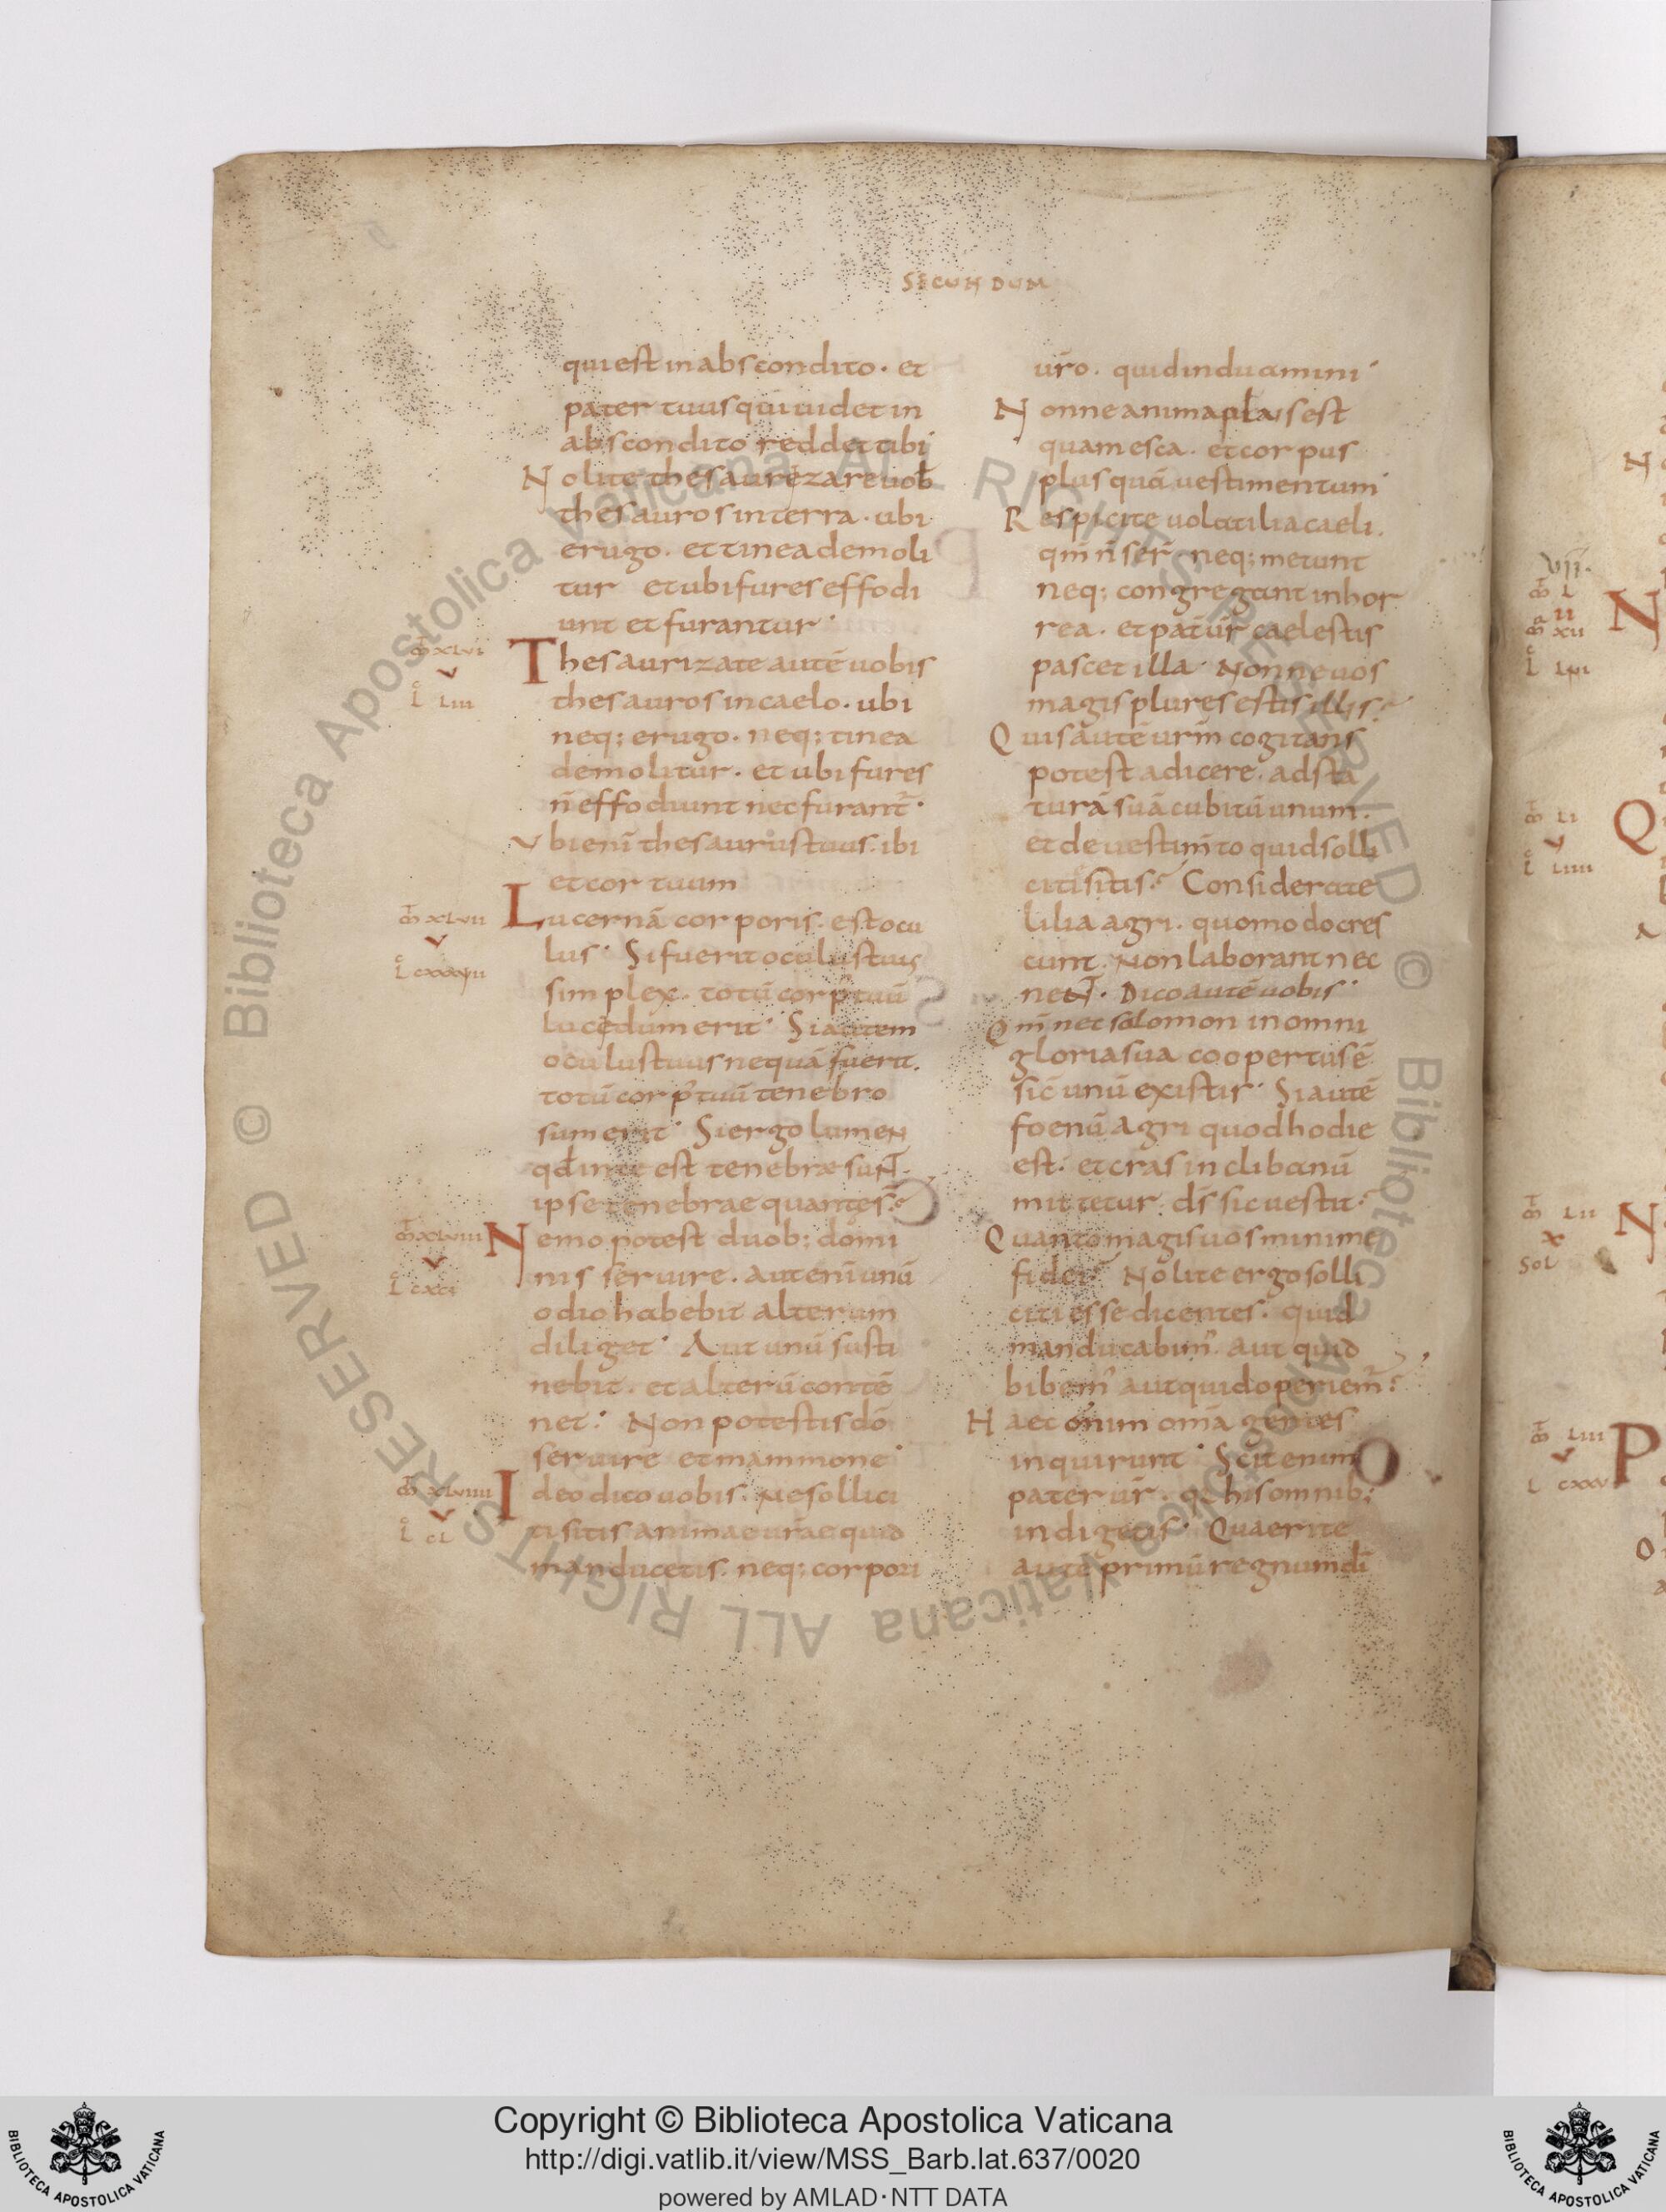 SECUNDUM
qui est in abscondito · et
pater tuus qui uidet in
abscondito reddet tibi
Nolite thesaurezare uob̄
thesauros in terra · ubi
erugo · et tinea demoli
tur et ubi fures effodi
unt et furantur ·
m̄ xlvi
l̊ liii
Thesaurizate autē uobis
thesauros in caelo · ubi
neq; erugo · neq; tinea
demolitur · et ubi fures
n̄ effodiunt nec furant̄ ·
Vbi enī thesaurus tuus · ibi
et cor tuum
m̄ xlvii
Lucernā corporis · est ocu
lus · Si fuerit oculus tuus
simplex · totū corp' tuū
lucędum erit · Si autem
oculus tuus nequā fuerit ·
totū corp' tuū tenebro
sum erit · Si ergo lumen
qd̄ in te est tenebræ sunt̄ ·
ipse tenebrae quantes ·
m̄ xlviii
Nemo potest duob; domi
nis seruire · aut enī unū
odio habebit alterum
diliget · Aut unū susti
nebit · et alterū contē
net : Non potestis dō
seruire et mammone ·
m̄ xlviiii
l̊ cl
Ideo dico uobis · Ne sollici
ti sitis animae ur̄ae quid
manducetis · neq; corpori
ur̄o · quid induamini ·
Nonne anima plus est
quam esca · et corpus
plus quā uestimentum ·
Respicite uolatilia caeli ·
qm̄ n̄ ser̄ neq; metunt
neq; congregant in hor
rea · et pater ur̄ caelestis
pascet illa · Nonne uos
magis plures estis illis :
Quis autē ur̄m cogitans
potest adicere · ad sta
turā suā cubitū unum ·
et de uestim̄to quid solli
citi sitis : Considerate
lilia agri · quomodo cres
cunt · Non laborant nec
nent̄ · Dico autē uobis ·
Qm̄ nec salomon in omni
gloria sua coopertus ē
sic unū ex istis · Si autē
foenū agri quod hodie
est · et cras in clibanū
mittetur · ds̄ sic uestit :
Quanto magis uos minime
fidei Nolite ergo solli
citi esse dicentes · quid
manducabim' aut quid
bibem' aut quid operiem̄ :
Haec enim om̄a gentes
inquirunt · Scit enim
pater ur̄ · q̄ his omnib;
indigetis · Quaerite
autē primū regnum dī
vii
m̄ l
m̄ xii
m̄ li
l̊ liiii
m̄ lii
x
Sol
m̄ liii
l cxxv
N
Q
N
P
© Biblioteca Apostolica Vaticana ALL RIGHTS RESERVED © Biblioteca Apostolica Vaticana ALL RIGHTS RESERVED
Copyright © Biblioteca Apostolica Vaticana
http://digi.vatlib.it/view/MSS_Barb.lat.637/0020
powered by AMLAD·NTT DATA
BIBLIOTECA APOSTOLICA VATICANA
BIBLIOTECA APOSTOLICA VATICANA